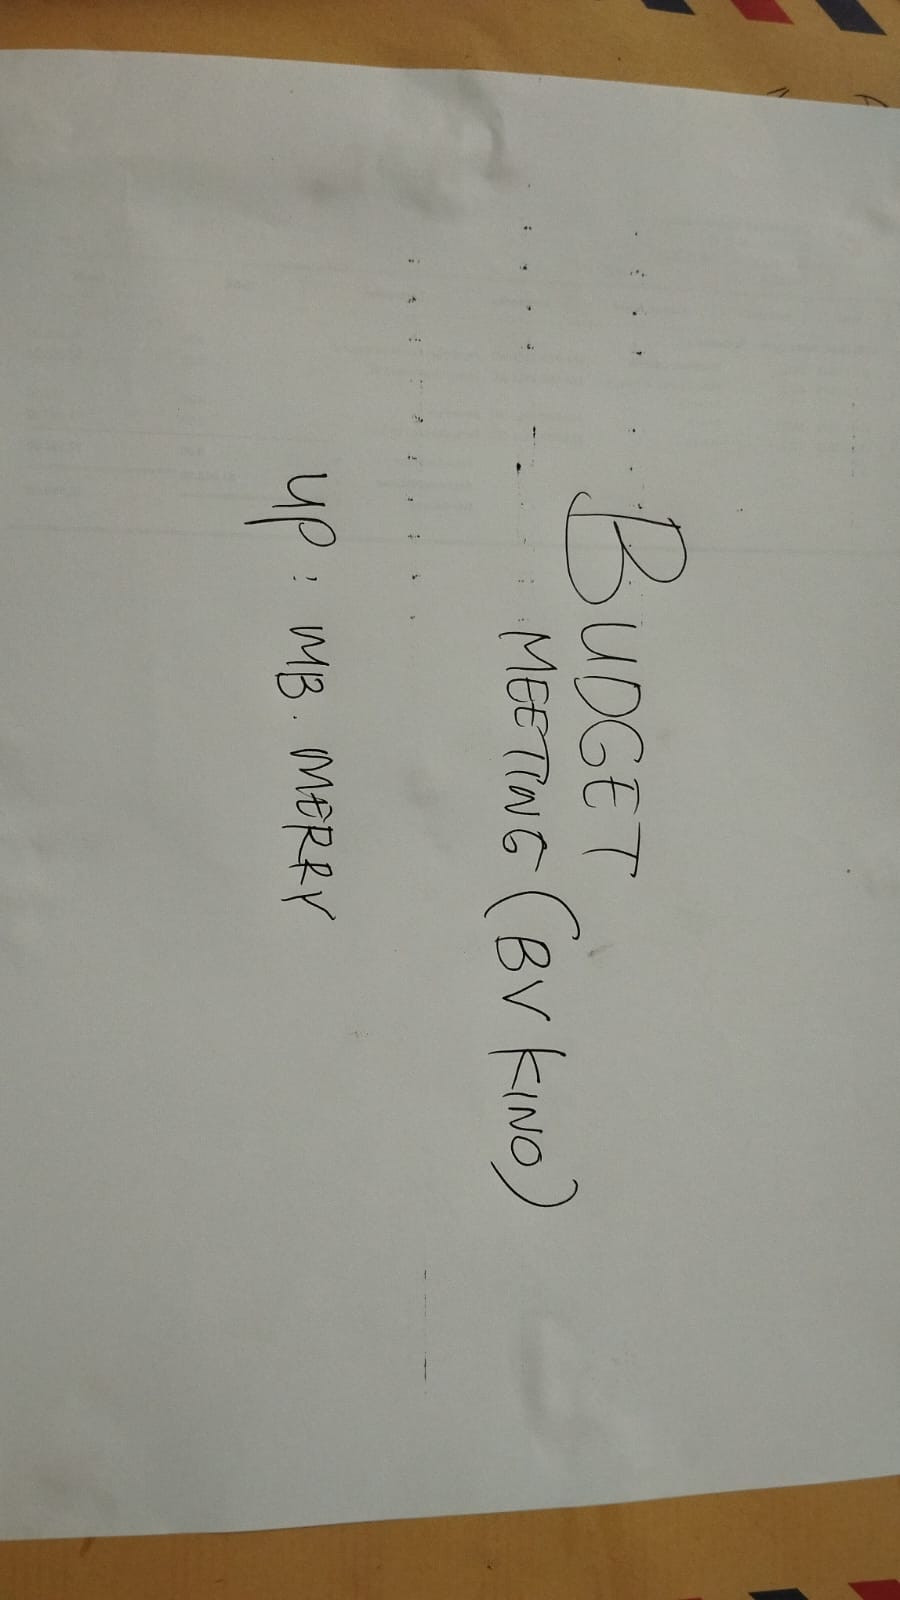 BUDGET
MEETING (BV KINO)
UP : MB. MERRY